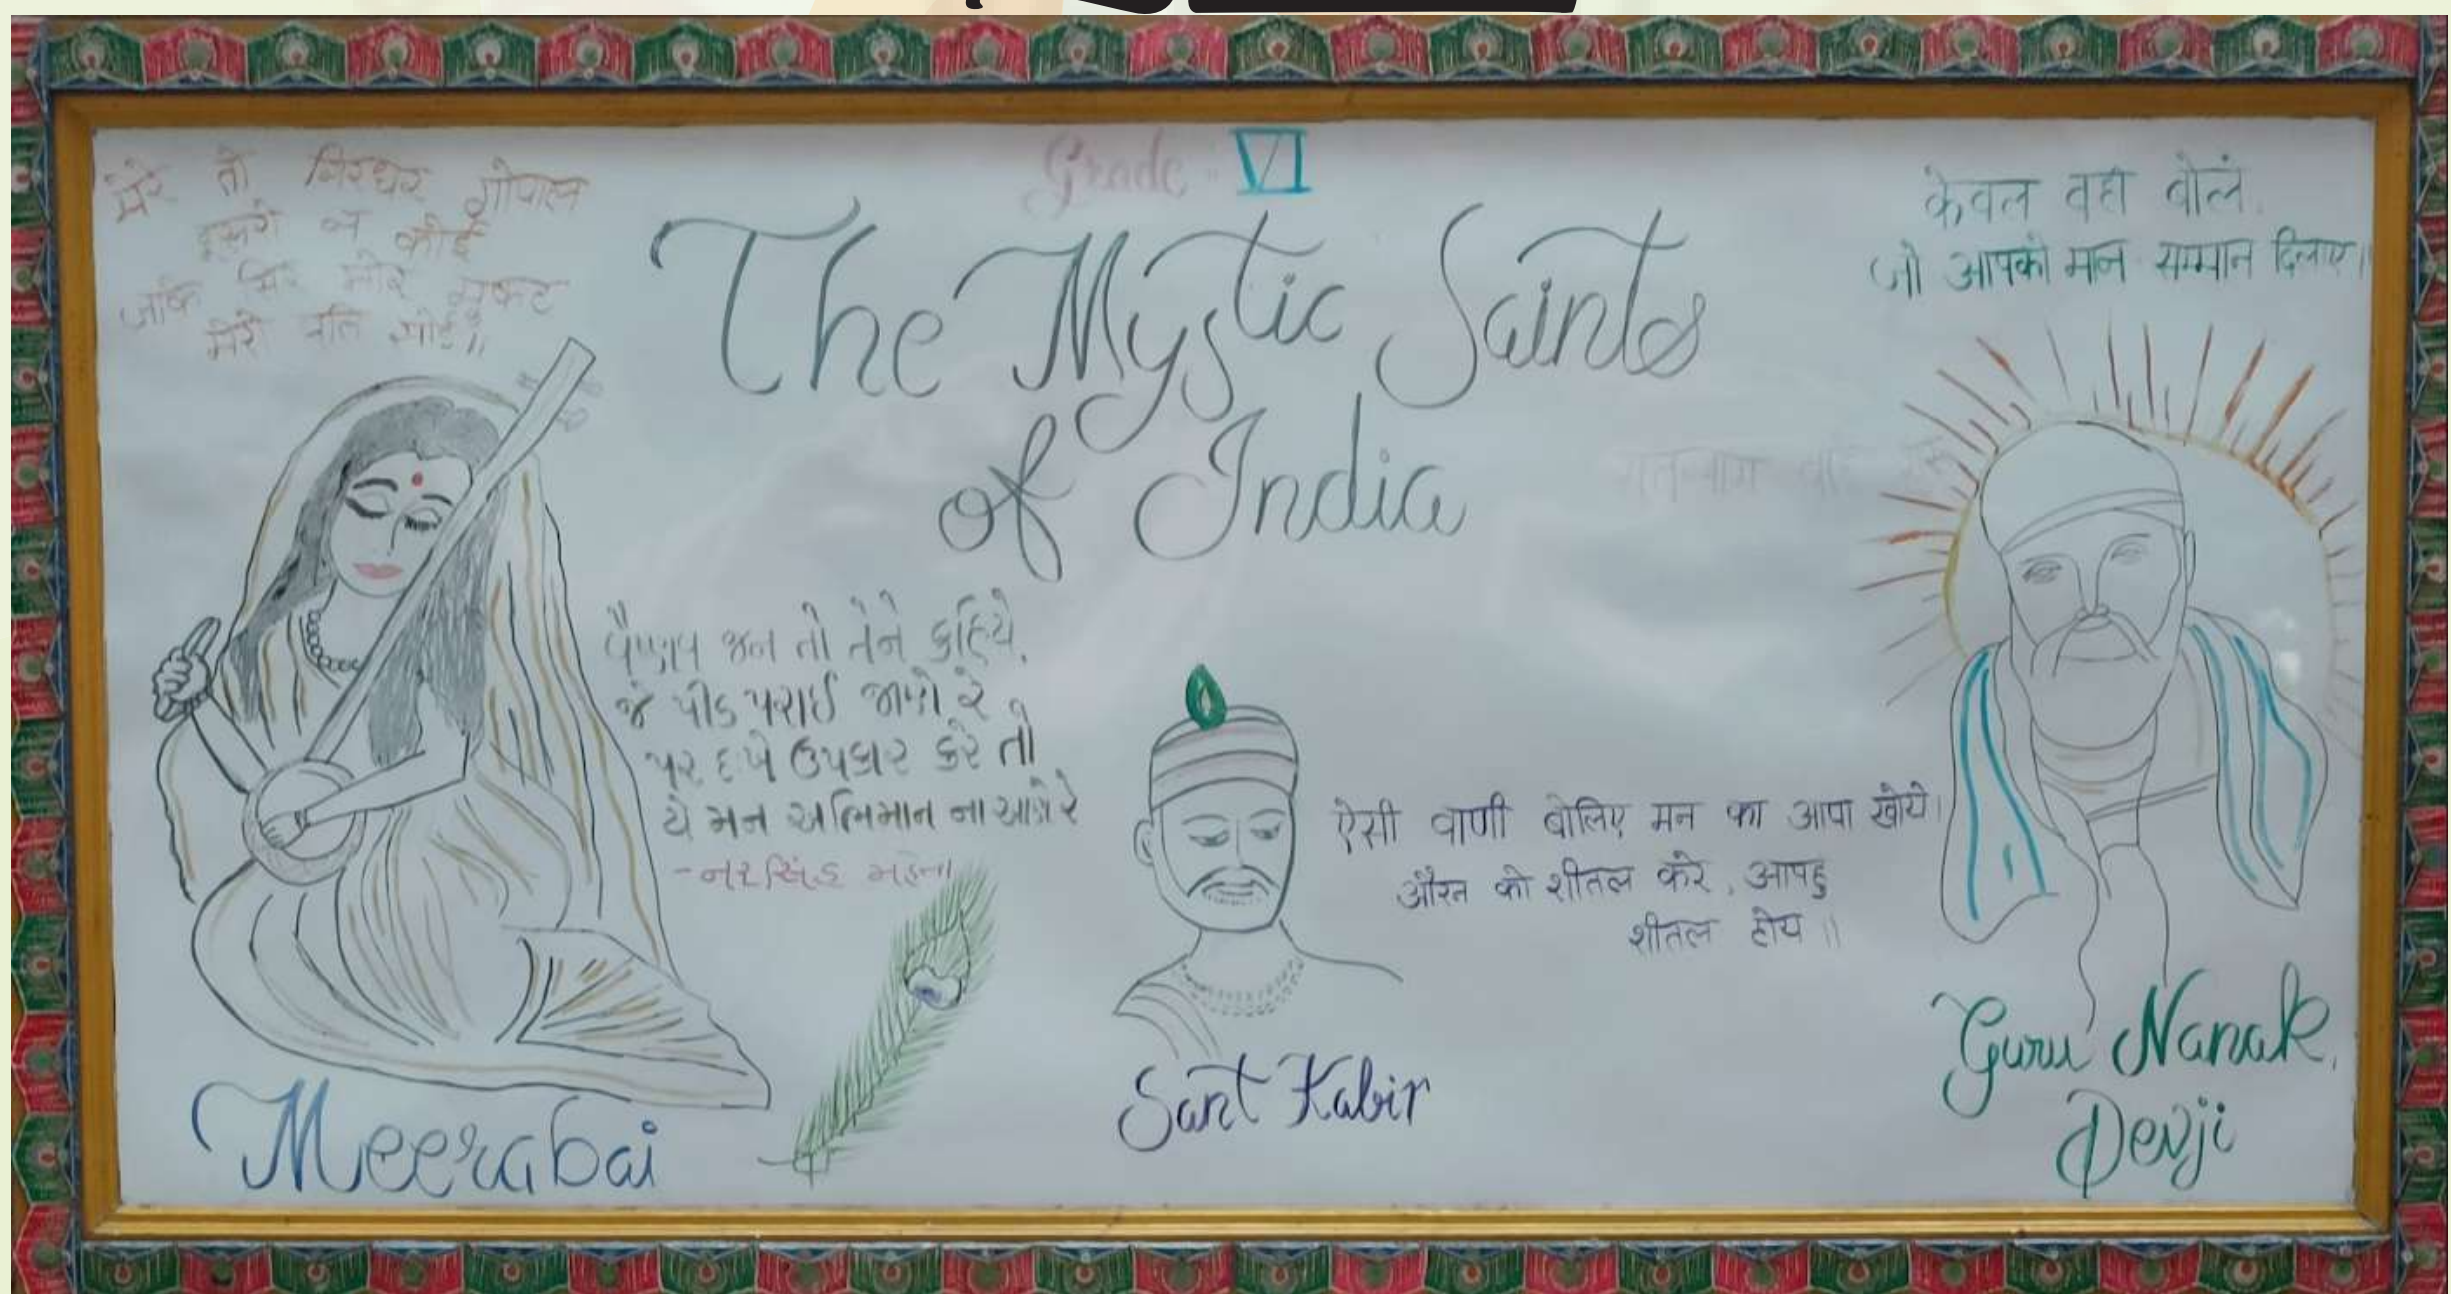 Grade : VI
The Mystic Saints
of India
मेरे तो गिरधर गोपाल
दूसरो न कोई
जाके सिर मोर मुकट
मेरो पति सोई॥
केवल वही बोलें,
जो आपको मान सम्मान दिलाए।
વૈષ્ણવ જન તો તેને કહિયે,
જે પીડ પરાઈ જાણે રે
પર દુખે ઉપકાર કરે તો
યે મન અભિમાન ના આણે રે
- નરસિંહ મહેતા
ऐसी वाणी बोलिए मन का आपा खोये।
औरन को शीतल करे, आपहु
शीतल होय॥
Meerabai
Sant Kabir
Guru Nanak
Devji